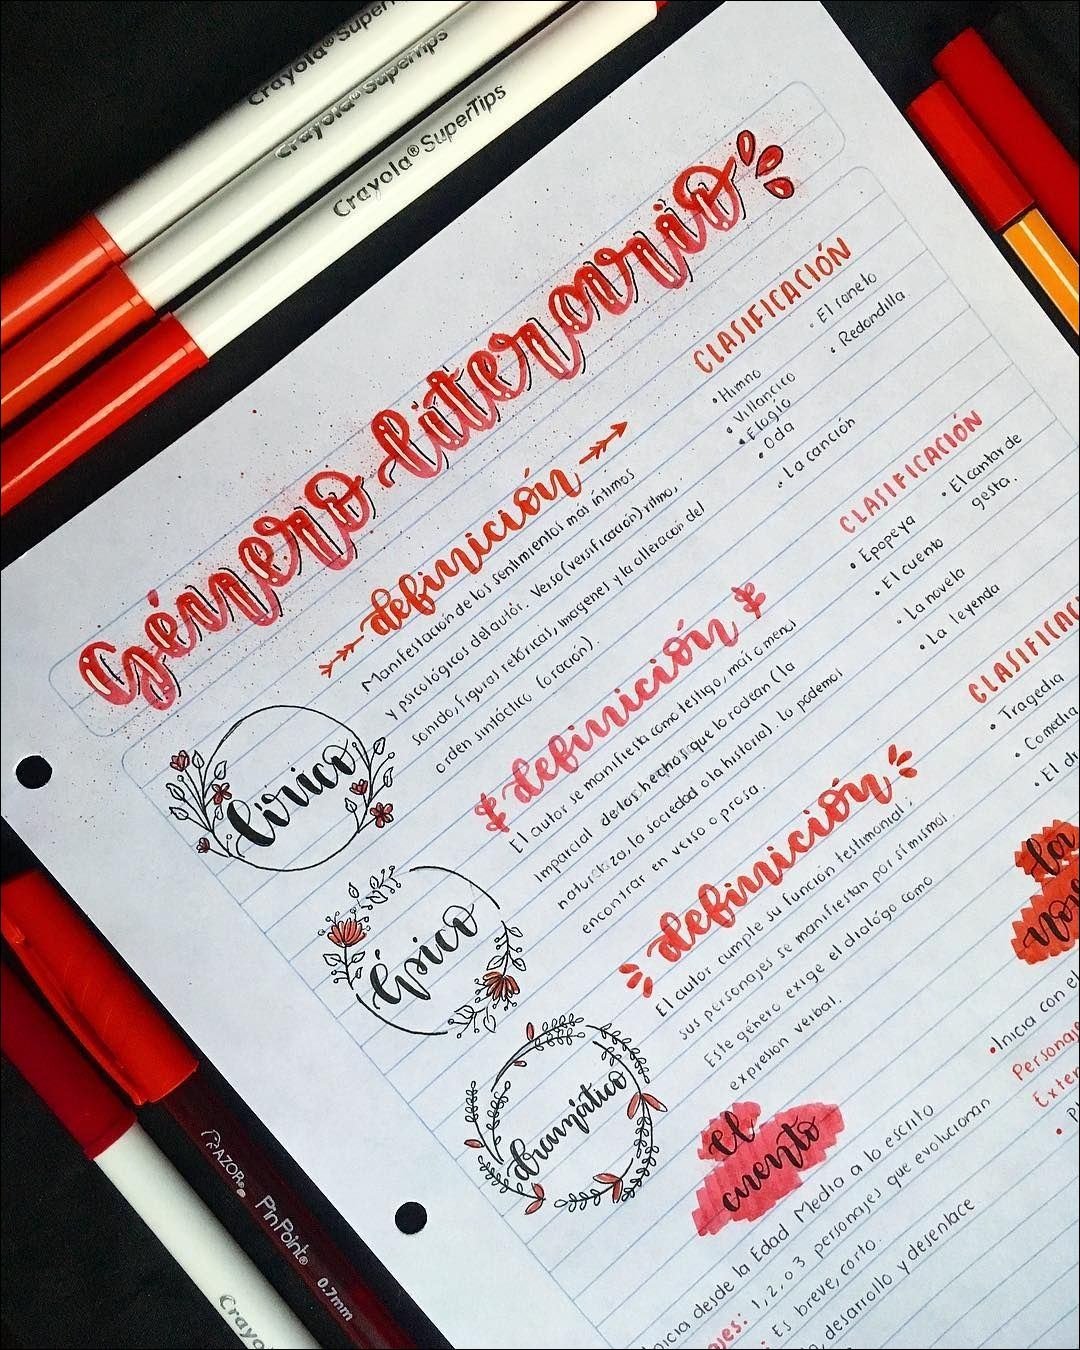 Crayola® Super
Crayola® SuperTips
Crayola® SuperTips
Género literario
Lírico
definición
Manifestación de los sentimientos más íntimos
y psicológicos del autór. Verso (versificación) ritmo,
sonido, figuras retóricas, imagenes y la alteracón del
orden sintáctico (oración).
CLASIFICACIÓN
• Himno
• Villancico
• Elogio
• Oda
• La canción
• El soneto
• Redondilla
Épico
definición
El autor se manifiesta como testigo, más o menos
imparcial de los hechos que lo rodean (la
naturaleza, la sociedad o la historia). Lo podemos
encontrar en verso o prosa.
CLASIFICACIÓN
• Epopeya
• El cuento
• La novela
• La leyenda
• El cantar de
gesta.
dramático
definición
El autor cumple su función testimonial;
sus personajes se manifiestan por sí mismos.
Este género exige el dialógo como
expresión verbal.
CLASIFICAC
• Tragedia
• Comedia
• El dr
el
cuento
nicia desde la Edad Media a lo escrito
jes: 1, 2, o 3 personajes que evolucionan
Es breve, corto.
, desarrollo y desenlace
la
nove
• Inicia con el
Personaje
Exten
RAZOR
PinPoint®
0.7mm
Crayo